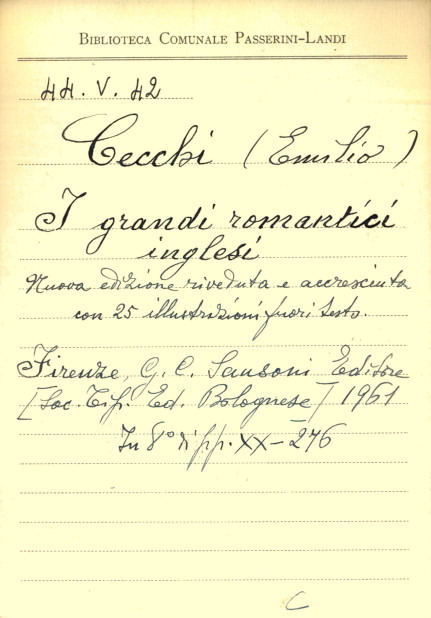 BIBLIOTECA COMUNALE PASSERINI-LANDI
44. V. 42
Cecchi (Emilio)
I grandi romantici
inglesi
Nuova edizione riveduta e accresciuta
con 25 illustrazioni fuori testo.
Firenze, G. C. Sansoni Editore
[Soc. Tip. Ed. Bolognese] 1961
In 8° di pp. XX-276
C